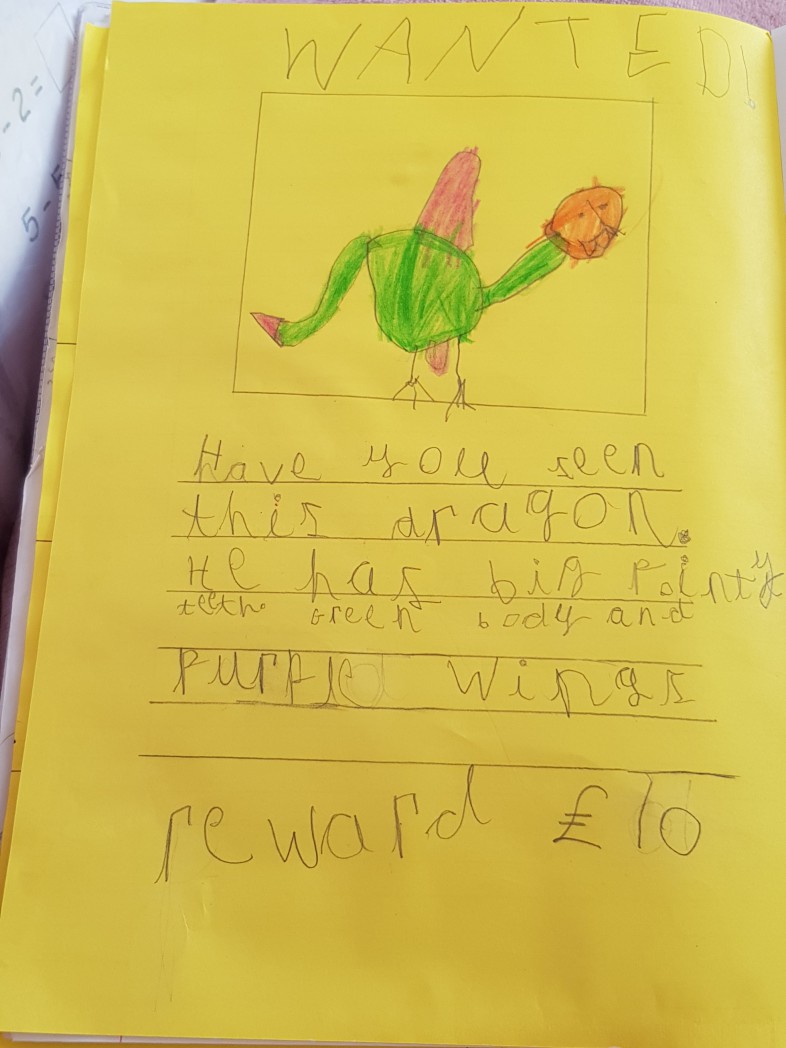 - 2 =
5 - 5
WANTED!
Have you seen
this dragon.
He has big pointy
teeth. Green body and
purple wings
reward £10